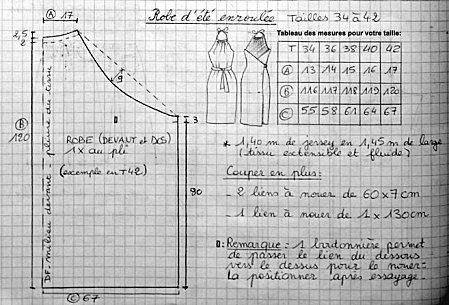 Robe d'été enroulée Tailles 34 à 42
Tableau des mesures pour votre taille:
T 34 36 38 40 42
A 13 14 15 16 17
B 116 117 118 119 120
C 55 58 61 64 67
A 17
2,5
2
9
B
120
DF. milieu devant - pliure du tissu
3
ROBE (DEVANT et DOS)
1 x au pli
(exemple en T42)
90
C 67
* 1,40 m de jersey en 1,45 m de large
(tissu extensible et fluide)
Couper en plus:
- 2 liens à nouer de 60 x 7 cm
- 1 lien à nouer de 1 x 130 cm
Remarque = 1 boutonnière permet
de passer le lien du dessous
vers le dessus pour le nouer.
La positionner après essayage.